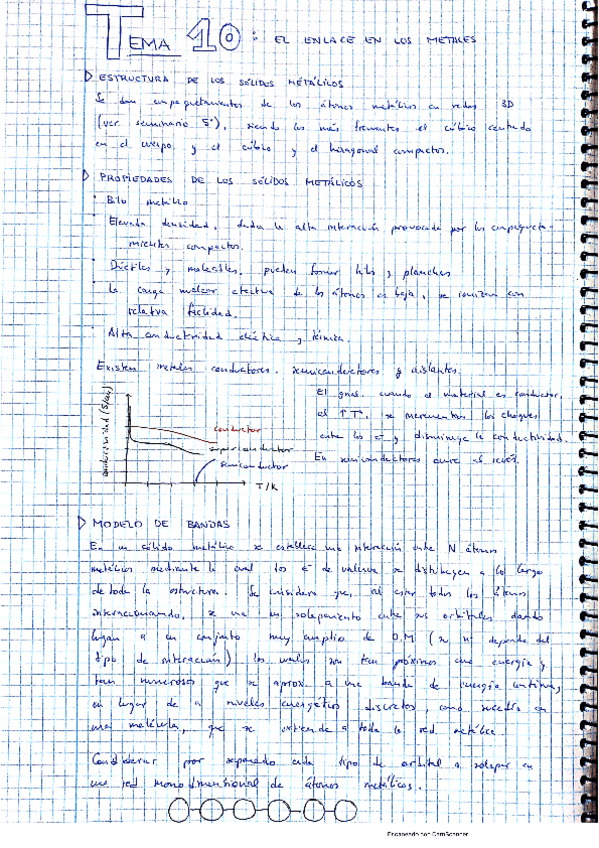 TEMA 10: EL ENLACE EN LOS METALES
▷ ESTRUCTURA DE LOS SÓLIDOS METÁLICOS
Se dan empaquetamientos de los átomos metálicos en redes 3D
(ver seminario 5), siendo los más frecuentes el cúbico centrado
en el cuerpo y el cúbico y el hexagonal compactos.
▷ PROPIEDADES DE LOS SÓLIDOS METÁLICOS
· Brillo metálico
· Elevada densidad, dada la alta interacción provocada por los empaqueta-
mientos compactos.
· Dúctiles y maleables, pueden formar hilos y planchas
· La carga nuclear efectiva de los átomos es baja, se ionizan con
relativa facilidad.
· Alta conductividad eléctrica y térmica.
Existen metales conductores, semiconductores y aislantes.
conductividad (S/cm)
conductor
superconductor
semiconductor
T/K
El gnal. cuando el material es conductor,
al ↑T, se incrementan los choques
entre los e⁻ y disminuye la conductividad.
En semiconductores ocurre al revés.
▷ MODELO DE BANDAS
En un sólido metálico se establece una interacción entre N átomos
metálicos mediante la cual los e⁻ de valencia se distribuyen a lo largo
de toda la estructura. Se considera que, al estar todos los átomos
interaccionando, se da un solapamiento entre sus orbitales dando
lugar a un conjunto muy amplio de O.M (su nº depende del
tipo de interacción) los cuales son tan próximos en energía y
tan numerosos que se aprox. a una banda de energía continua,
en lugar de a niveles energéticos discretos, como sucedía en
una molécula, que se extiende a toda la red metálica.
Considerar por separado cada tipo de orbital a solapar en
una red monodimensional de átomos metálicos.
Escaneado con CamScanner